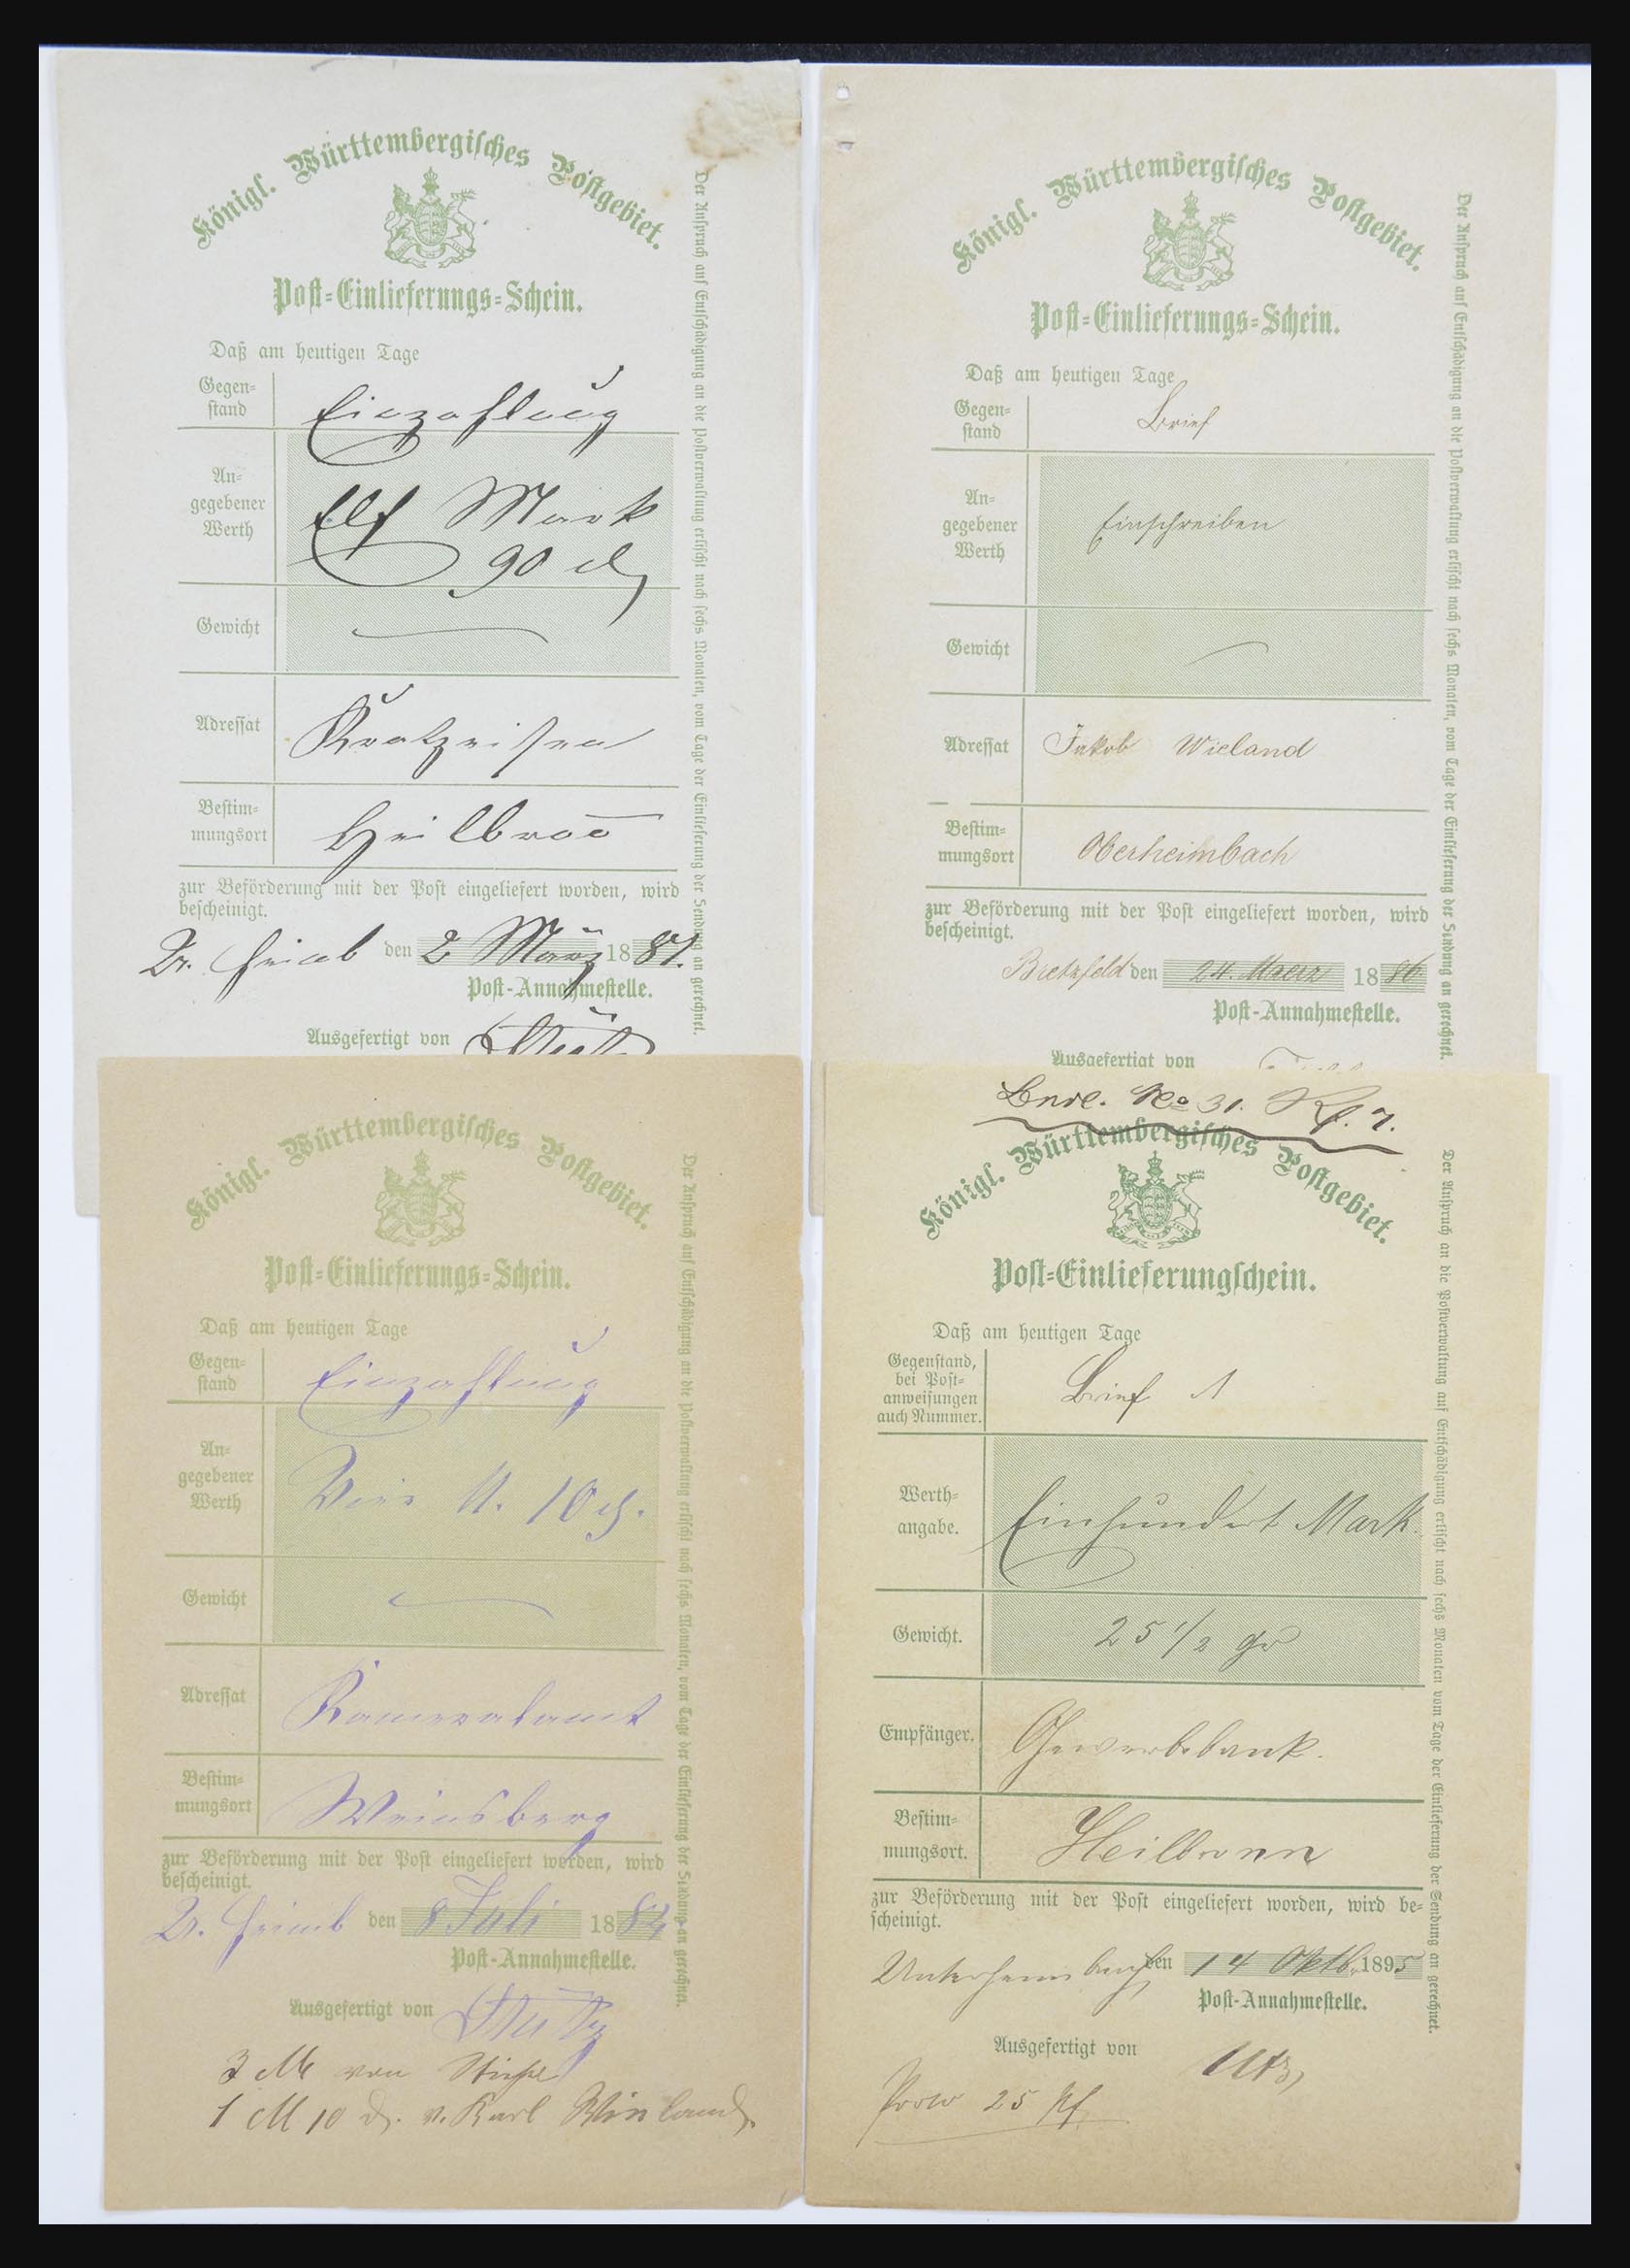 Königl. Württembergisches Postgebiet.
Post-Einlieferungs-Schein.
Daß am heutigen Tage
Gegen-
stand
Einzahlung
An-
gegebener
Werth
Elf Mark
90 ₰
Gewicht
Adressat
Bestim-
mungsort
Heilbronn
zur Beförderung mit der Post eingeliefert worden, wird
bescheinigt.
den 2 März 1881.
Post-Annahmestelle.
Ausgefertigt von
Der Anspruch auf Entschädigung an die Postverwaltung erlischt nach sechs Monaten, vom Tage der Einlieferung der Sendung an gerechnet.
Königl. Württembergisches Postgebiet.
Post-Einlieferungs-Schein.
Daß am heutigen Tage
Gegen-
stand
Brief
An-
gegebener
Werth
Einschreiben
Gewicht
Adressat
Jakob Wieland
Bestim-
mungsort
Oberheimbach
zur Beförderung mit der Post eingeliefert worden, wird
bescheinigt.
Bretzfeld den 24. Maerz 1886
Post-Annahmestelle.
Ausgefertigt von
Der Anspruch auf Entschädigung an die Postverwaltung erlischt nach sechs Monaten, vom Tage der Einlieferung der Sendung an gerechnet.
Königl. Württembergisches Postgebiet.
Post-Einlieferungs-Schein.
Daß am heutigen Tage
Gegen-
stand
Einzahlung
An-
gegebener
Werth
Vier M. 10 ₰.
Gewicht
Adressat
Kameralamt
Bestim-
mungsort
Weinsberg
zur Beförderung mit der Post eingeliefert worden, wird
bescheinigt.
den 8 Juli 188
Post-Annahmestelle.
Ausgefertigt von
3 M von
1 M 10 ₰. v. Karl Wieland
Der Anspruch auf Entschädigung an die Postverwaltung erlischt nach sechs Monaten, vom Tage der Einlieferung der Sendung an gerechnet.
No 31.
Königl. Württembergisches Postgebiet.
Post-Einlieferungschein.
Daß am heutigen Tage
Gegenstand,
bei Post-
anweisungen
auch Nummer.
Brief 1
Werth-
angabe.
Einhundert Mark.
Gewicht.
25 1/2 gr
Empfänger.
Gewerbebank.
Bestim-
mungsort.
Heilbronn
zur Beförderung mit der Post eingeliefert worden, wird be-
scheinigt.
Unterheimbach den 14 Oktb. 1895
Post-Annahmestelle.
Ausgefertigt von Utz,
Porto 25 Pf.
Der Anspruch an die Postverwaltung auf Entschädigung erlischt nach sechs Monaten vom Tage der Einlieferung der Sendung an gerechnet.